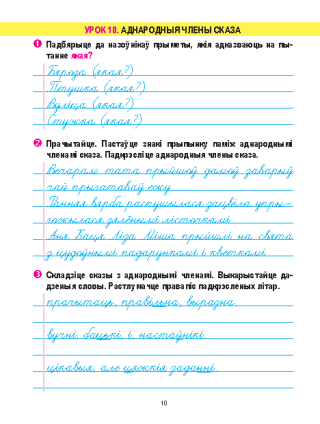 УРОК 10. АДНАРОДНЫЯ ЧЛЕНЫ СКАЗА
1 Падбярыце да назоўнікаў прыметы, якія адказваюць на пы-
танне якая?
Бяроза (якая?)
Птушка (якая?)
Вуліца (якая?)
Стужка (якая?)
2 Прачытайце. Пастаўце знакі прыпынку паміж аднароднымі
членамі сказа. Падкрэсліце аднародныя члены сказа.
Вечарам тата прыйшоў дамоў заварыў
чай прыгатаваў ежу.
Донняя вярба распушылася зацвіла упры-
гожылася зялёнымі лісточкамі.
Аня Каця Ліза Міша прыйшлі на свята
з цудоўнымі падарункамі і кветкамі.
3 Складзіце сказы з аднароднымі членамі. Выкарыстайце да-
дзеныя словы. Растлумачце правапіс падкрэсленых літар.
прачытаць, правільна, выразна.
вучні, бацькі, і, настаўнікі.
цікавыя, але цяжкія заданні.
10